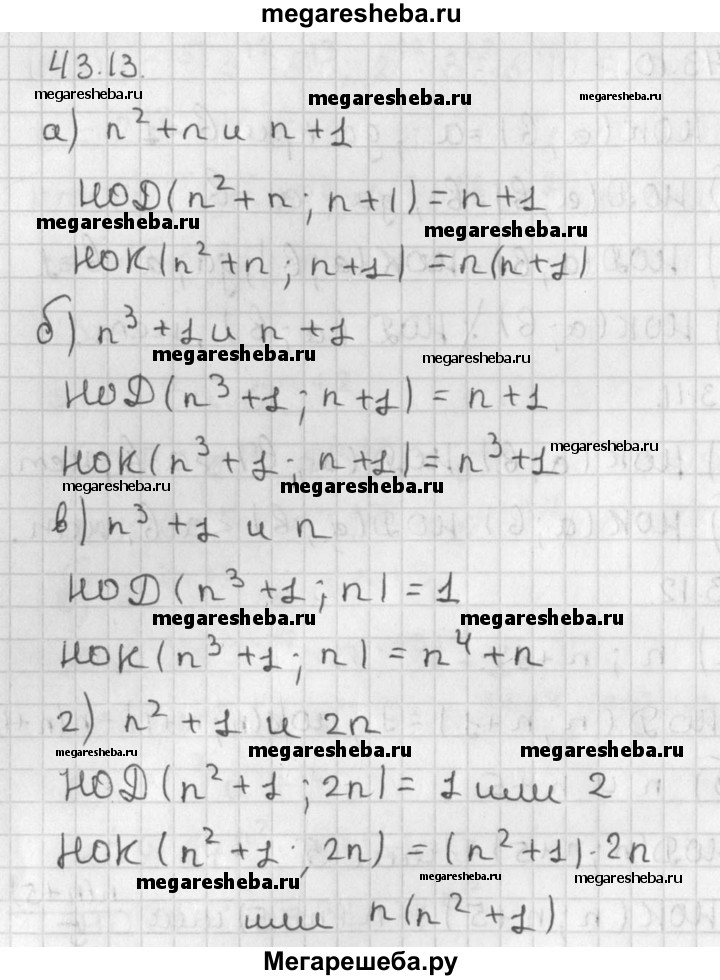 megaresheba.ru
43.13.
megaresheba.ru megaresheba.ru megaresheba.ru
а) n² + n и n + 1
НОД(n² + n ; n + 1) = n + 1
megaresheba.ru megaresheba.ru
НОК(n² + n ; n + 1) = n(n + 1)
б) n³ + 1 и n + 1
megaresheba.ru megaresheba.ru
НОД(n³ + 1 ; n + 1) = n + 1
НОК(n³ + 1 ; n + 1) = n³ + 1
megaresheba.ru
megaresheba.ru megaresheba.ru
в) n³ + 1 и n
НОД(n³ + 1 ; n) = 1
megaresheba.ru megaresheba.ru
НОК(n³ + 1 ; n) = n⁴ + n
г) n² + 1 и 2n
megaresheba.ru megaresheba.ru megaresheba.ru
НОД(n² + 1 ; 2n) = 1 или 2
НОК(n² + 1 ; 2n) = (n² + 1) · 2n
megaresheba.ru megaresheba.ru megaresheba.ru
или n(n² + 1)
Мегарешеба.ру